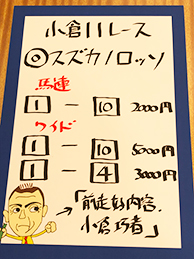 小倉11レース
◎スズカノロッソ
馬連
1 ー 10 2000円
ワイド
1 ー 10 5000円
1 ー 4 3000円
→「前走好内容。
小倉巧者」